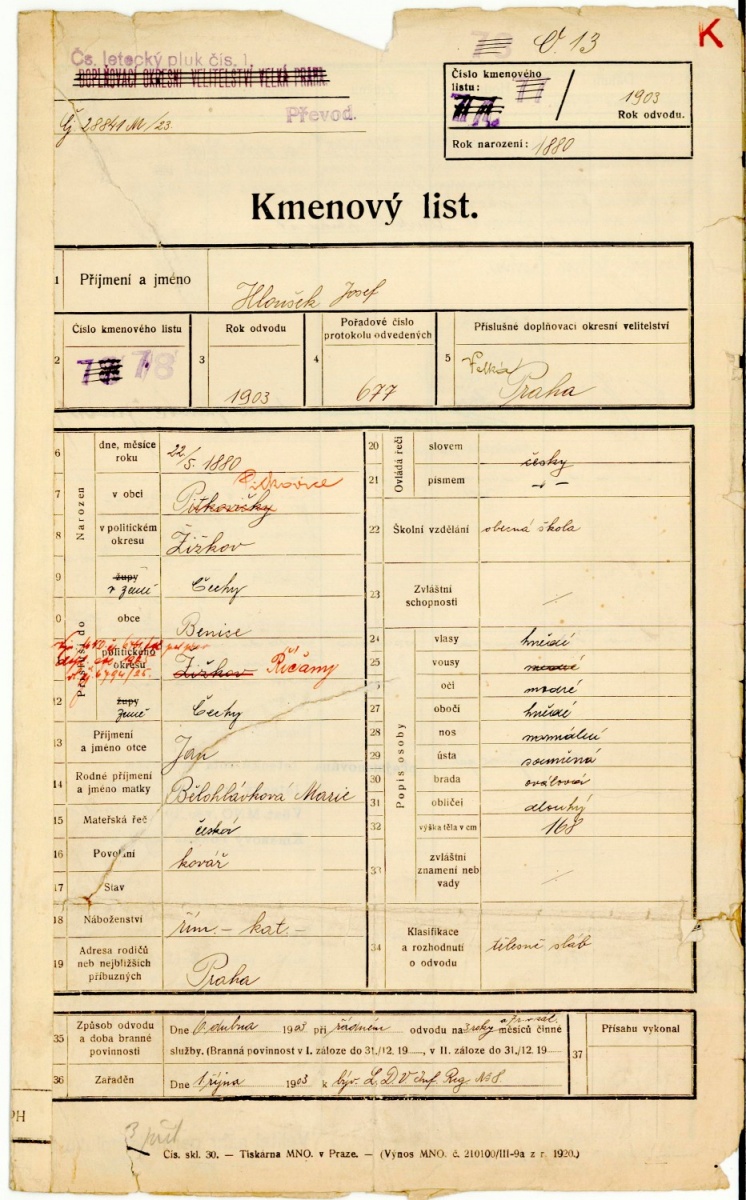 Čs. letecký pluk čís. 1.
DOPLŇOVACÍ OKRESNÍ VELITELSTVÍ VELKÁ PRAHA.
Čj 28841 M/23.
Převod.
78 O. 13
K
Číslo kmenového listu: 77 / 1903
Rok odvodu.
Rok narození: 1880
Kmenový list.
1 Příjmení a jméno Hloušek Josef
2 Číslo kmenového listu 78
3 Rok odvodu 1903
4 Pořadové číslo protokolu odvedených 677
5 Příslušné doplňovací okresní velitelství Velká Praha
Narozen
6 dne, měsíce roku 22/5. 1880
7 v obci Pitkovičky Pitkovice
8 v politickém okresu Žižkov
9 župy v zemi Čechy
Přísluší do
0 obce Benice
politického okresu Žižkov Říčany
12 župy země Čechy
13 Příjmení a jméno otce Jan
14 Rodné příjmení a jméno matky Bělohlávková Marie
15 Mateřská řeč česká
16 Povolání kovář
17 Stav
18 Náboženství řím. - kat. -
19 Adresa rodičů neb nejbližších příbuzných Praha
Ovládá řeči
20 slovem česky
21 písmem - " -
22 Školní vzdělání obecná škola
23 Zvláštní schopnosti /
Popis osoby
24 vlasy hnědé
25 vousy
oči modré
27 obočí hnědé
28 nos normální
29 ústa souměrná
30 brada oválová
31 obličej dlouhý
32 výška těla v cm 168
33 zvláštní znamení neb vady /
34 Klasifikace a rozhodnutí o odvodu tělesně sláb
35 Způsob odvodu a doba branné povinnosti
Dne 6 dubna 1903 při řádném odvodu na 3 roky měsíců činné
služby. (Branná povinnost v I. záloze do 31./12. 19......, v II. záloze do 31./12. 19......
36 Zařaděn Dne 1 října 1903 k býv. L. D. V. Inf. Reg. No 8.
37 Přísahu vykonal
PH
3 příl
Čís. skl. 30. — Tiskárna MNO. v Praze. — (Výnos MNO. č. 210100/III-9a z r. 1920.)